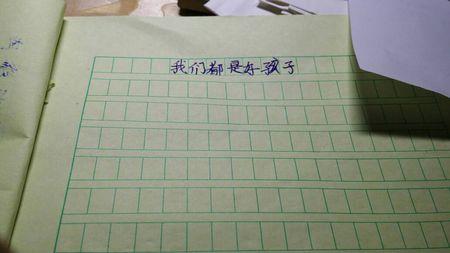 我们都是好孩子